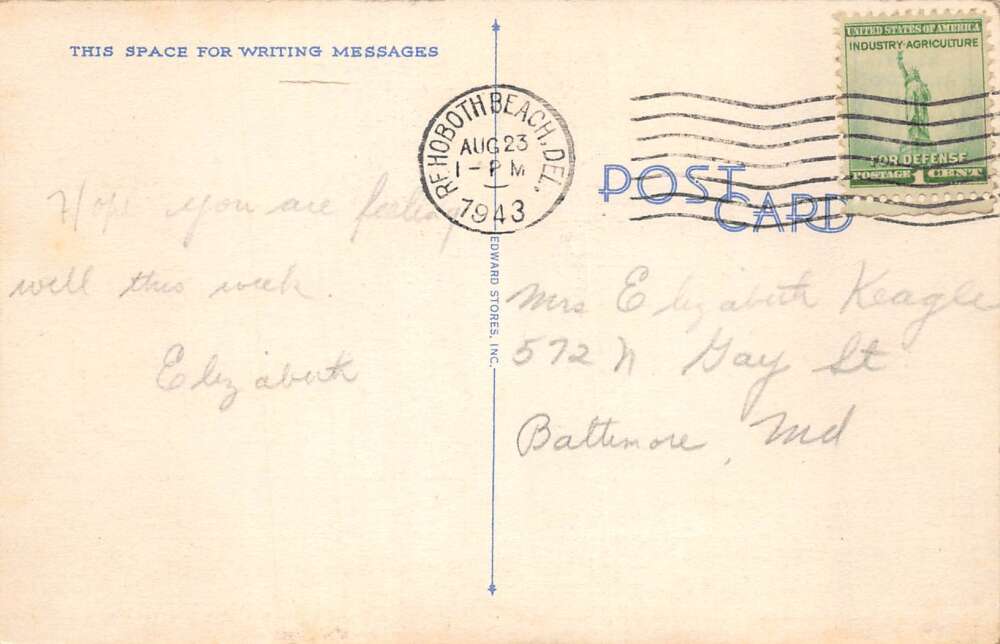 THIS SPACE FOR WRITING MESSAGES
Hope you are feeling
well this week.
Elizabeth
REHOBOTH BEACH, DEL.
AUG 23
1 - PM
1943
EDWARD STORES, INC.
UNITED STATES OF AMERICA
INDUSTRY·AGRICULTURE
FOR DEFENSE
POSTAGE 1 CENT
POST
CARD
Mrs Elizabeth Keagle
572 N Gay St
Baltimore, Md